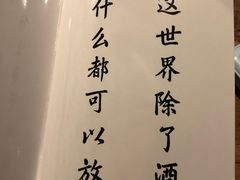 这世界除了酒
什么都可以放